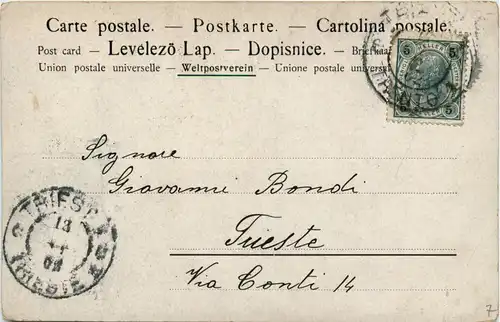 Carte postale. — Postkarte. — Cartolina postale.
Post card — Levelező Lap. — Dopisnice. —
Union postale universelle — Weltpostverein — Unione postale
5 5
5 5
Signore
Giovanni Bondi
Trieste
Via Conti 14
TRIEST
13
TRIESTE
7